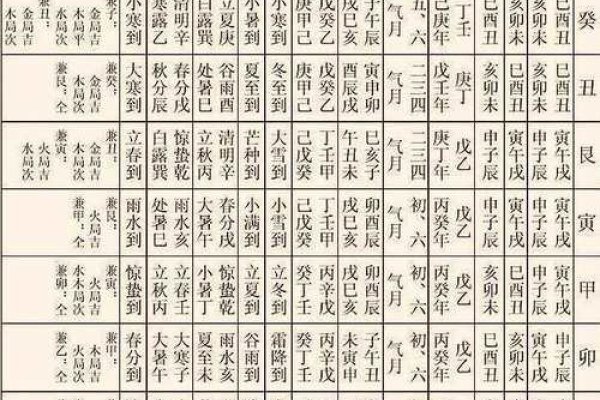 癸
巳酉丑
亥卯未
巳酉丑
亥卯未
丁壬
己庚年
五、六
气月
小寒到
小暑到
立夏庚
白露巽
寒露乙
小寒到
兼子：
金局吉
木局平
水局次
兼丑：
金局吉
木局次
丑
巳酉丑
亥卯未
巳酉丑
亥卯未
庚丁
戊壬年
二三四
气月
寅申卯
酉辰戌
戊癸乙
庚甲己
冬至到
夏至到
谷雨酉
处暑巳
春分戌
秋分辰
大寒到
兼癸：
金局吉
木局次
兼艮：全
艮
寅午戌
申子辰
寅午戌
申子辰
戊乙
庚丁年
二三四
气月
巳亥子
午丑未
丁壬甲
己戊癸
大雪到
芒种到
清明辛
立秋丙
惊蛰乾
白露巽
立春到
兼丑：
金局吉
木局次
兼寅：
火局吉
水局次
寅
寅午戌
申子辰
寅午戌
申子辰
戊乙
丙癸年
初、六
气月
卯酉辰
戌巳亥
丁壬甲
己戊癸
小雪到
小满到
春分戌
大暑午
雨水亥
处暑巳
雨水到
兼艮：
火局吉
水局次
兼甲：全
甲
寅午戌
申子辰
巳酉丑
亥卯未
戊乙
丙癸年
初、六
气月
卯酉辰
戌巳亥
丙辛戌
癸丁壬
立冬到
立夏到
惊蛰乾
小暑丁
立春壬
立秋丙
惊蛰到
兼寅：
火局吉
水木局次
兼卯：全
卯
申子辰
寅午戌
亥卯未
巳酉丑
戊乙
丙癸年
初、六
气月
子午丑
未寅申
丙辛戊
癸丁壬
霜降到
谷雨到
雨水亥
夏至未
大寒子
大暑午
春分到
兼甲：
木局吉
火局次
兼乙：全